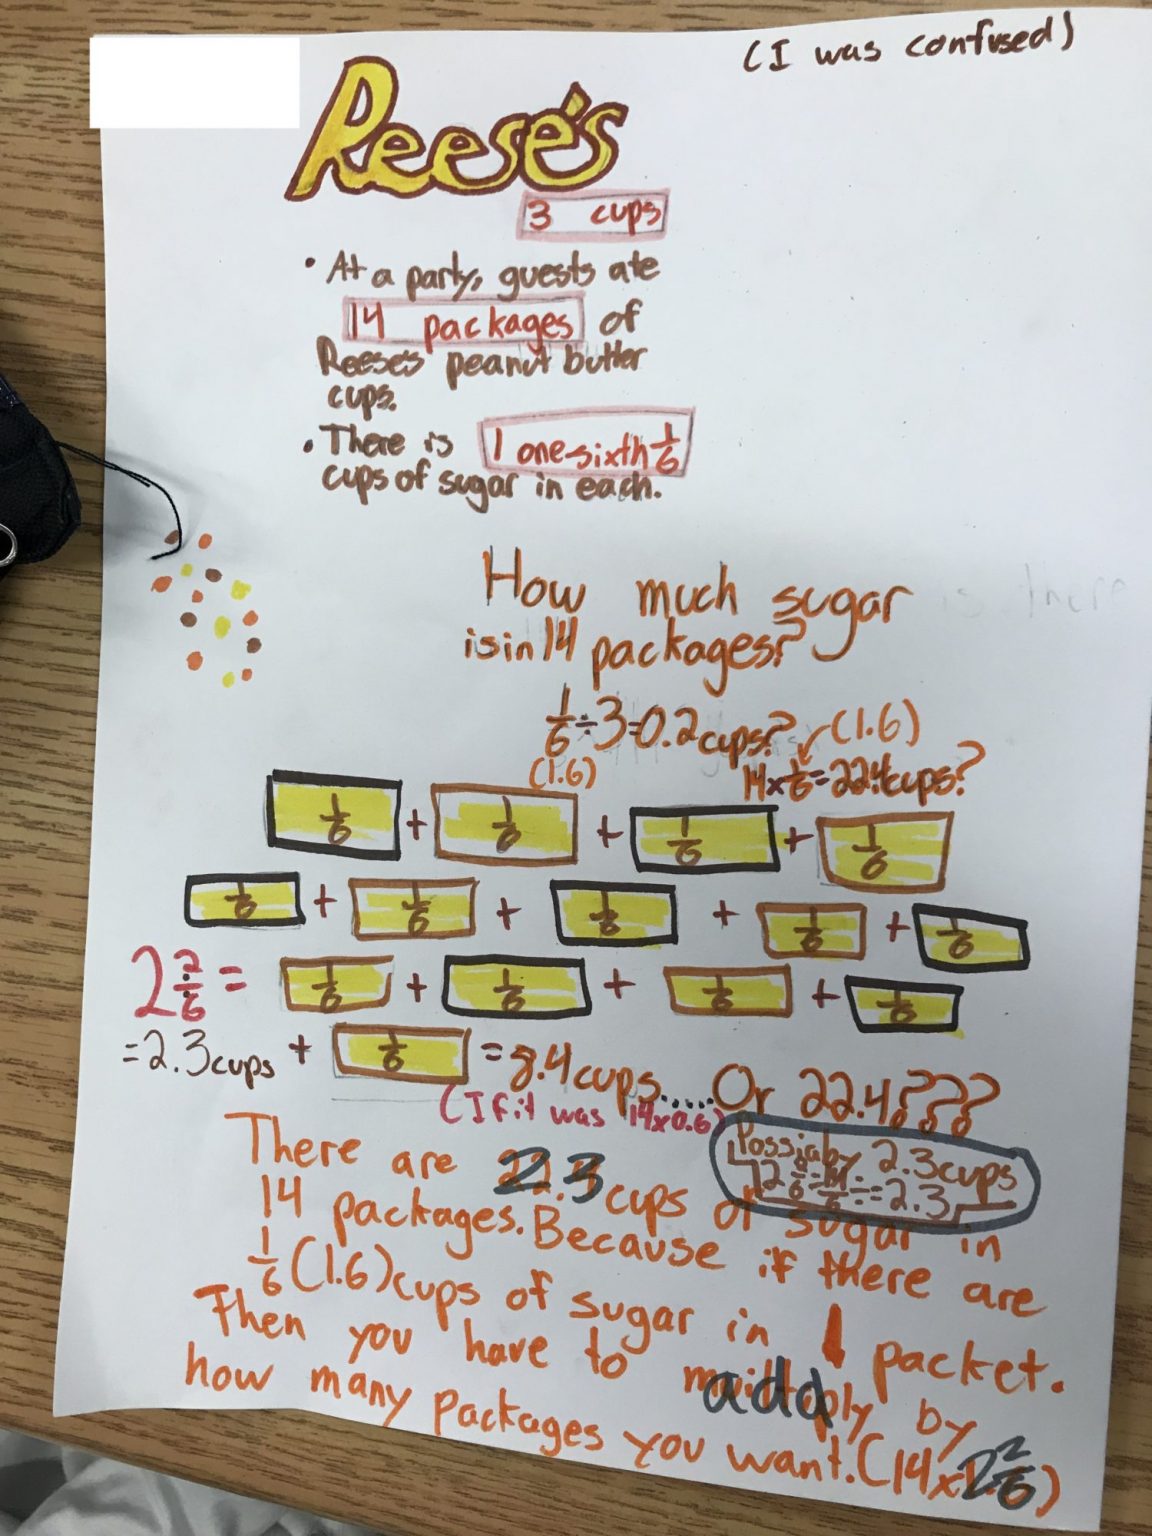 (I was confused)
Reese's
3 cups
• At a party, guests ate
14 packages of
Reese's peanut butter
cups.
• There is 1 one-sixth 1/6
cups of sugar in each.
How much sugar
is in 14 packages?
1/6 ÷ 3 = 0.2 cups? (1.6)
(1.6) 14 x 1/6 = 22.4 cups?
1/6 + 1/6 + 1/6 + 1/6
1/6 + 1/6 + 1/6 + 1/6 + 1/6
2 2/6 = 1/6 + 1/6 + 1/6 + 1/6
= 2.3 cups + 1/6 = 8.4 cups..... Or 22.4???
(If it was 14x0.6)
Possiaby 2.3 cups
= 2.3
There are 2.3 cups of sugar in
14 packages. Because if there are
1/6 (1.6) cups of sugar in 1 packet.
Then you have to add by
how many packages you want. (14 x 2 2/6)